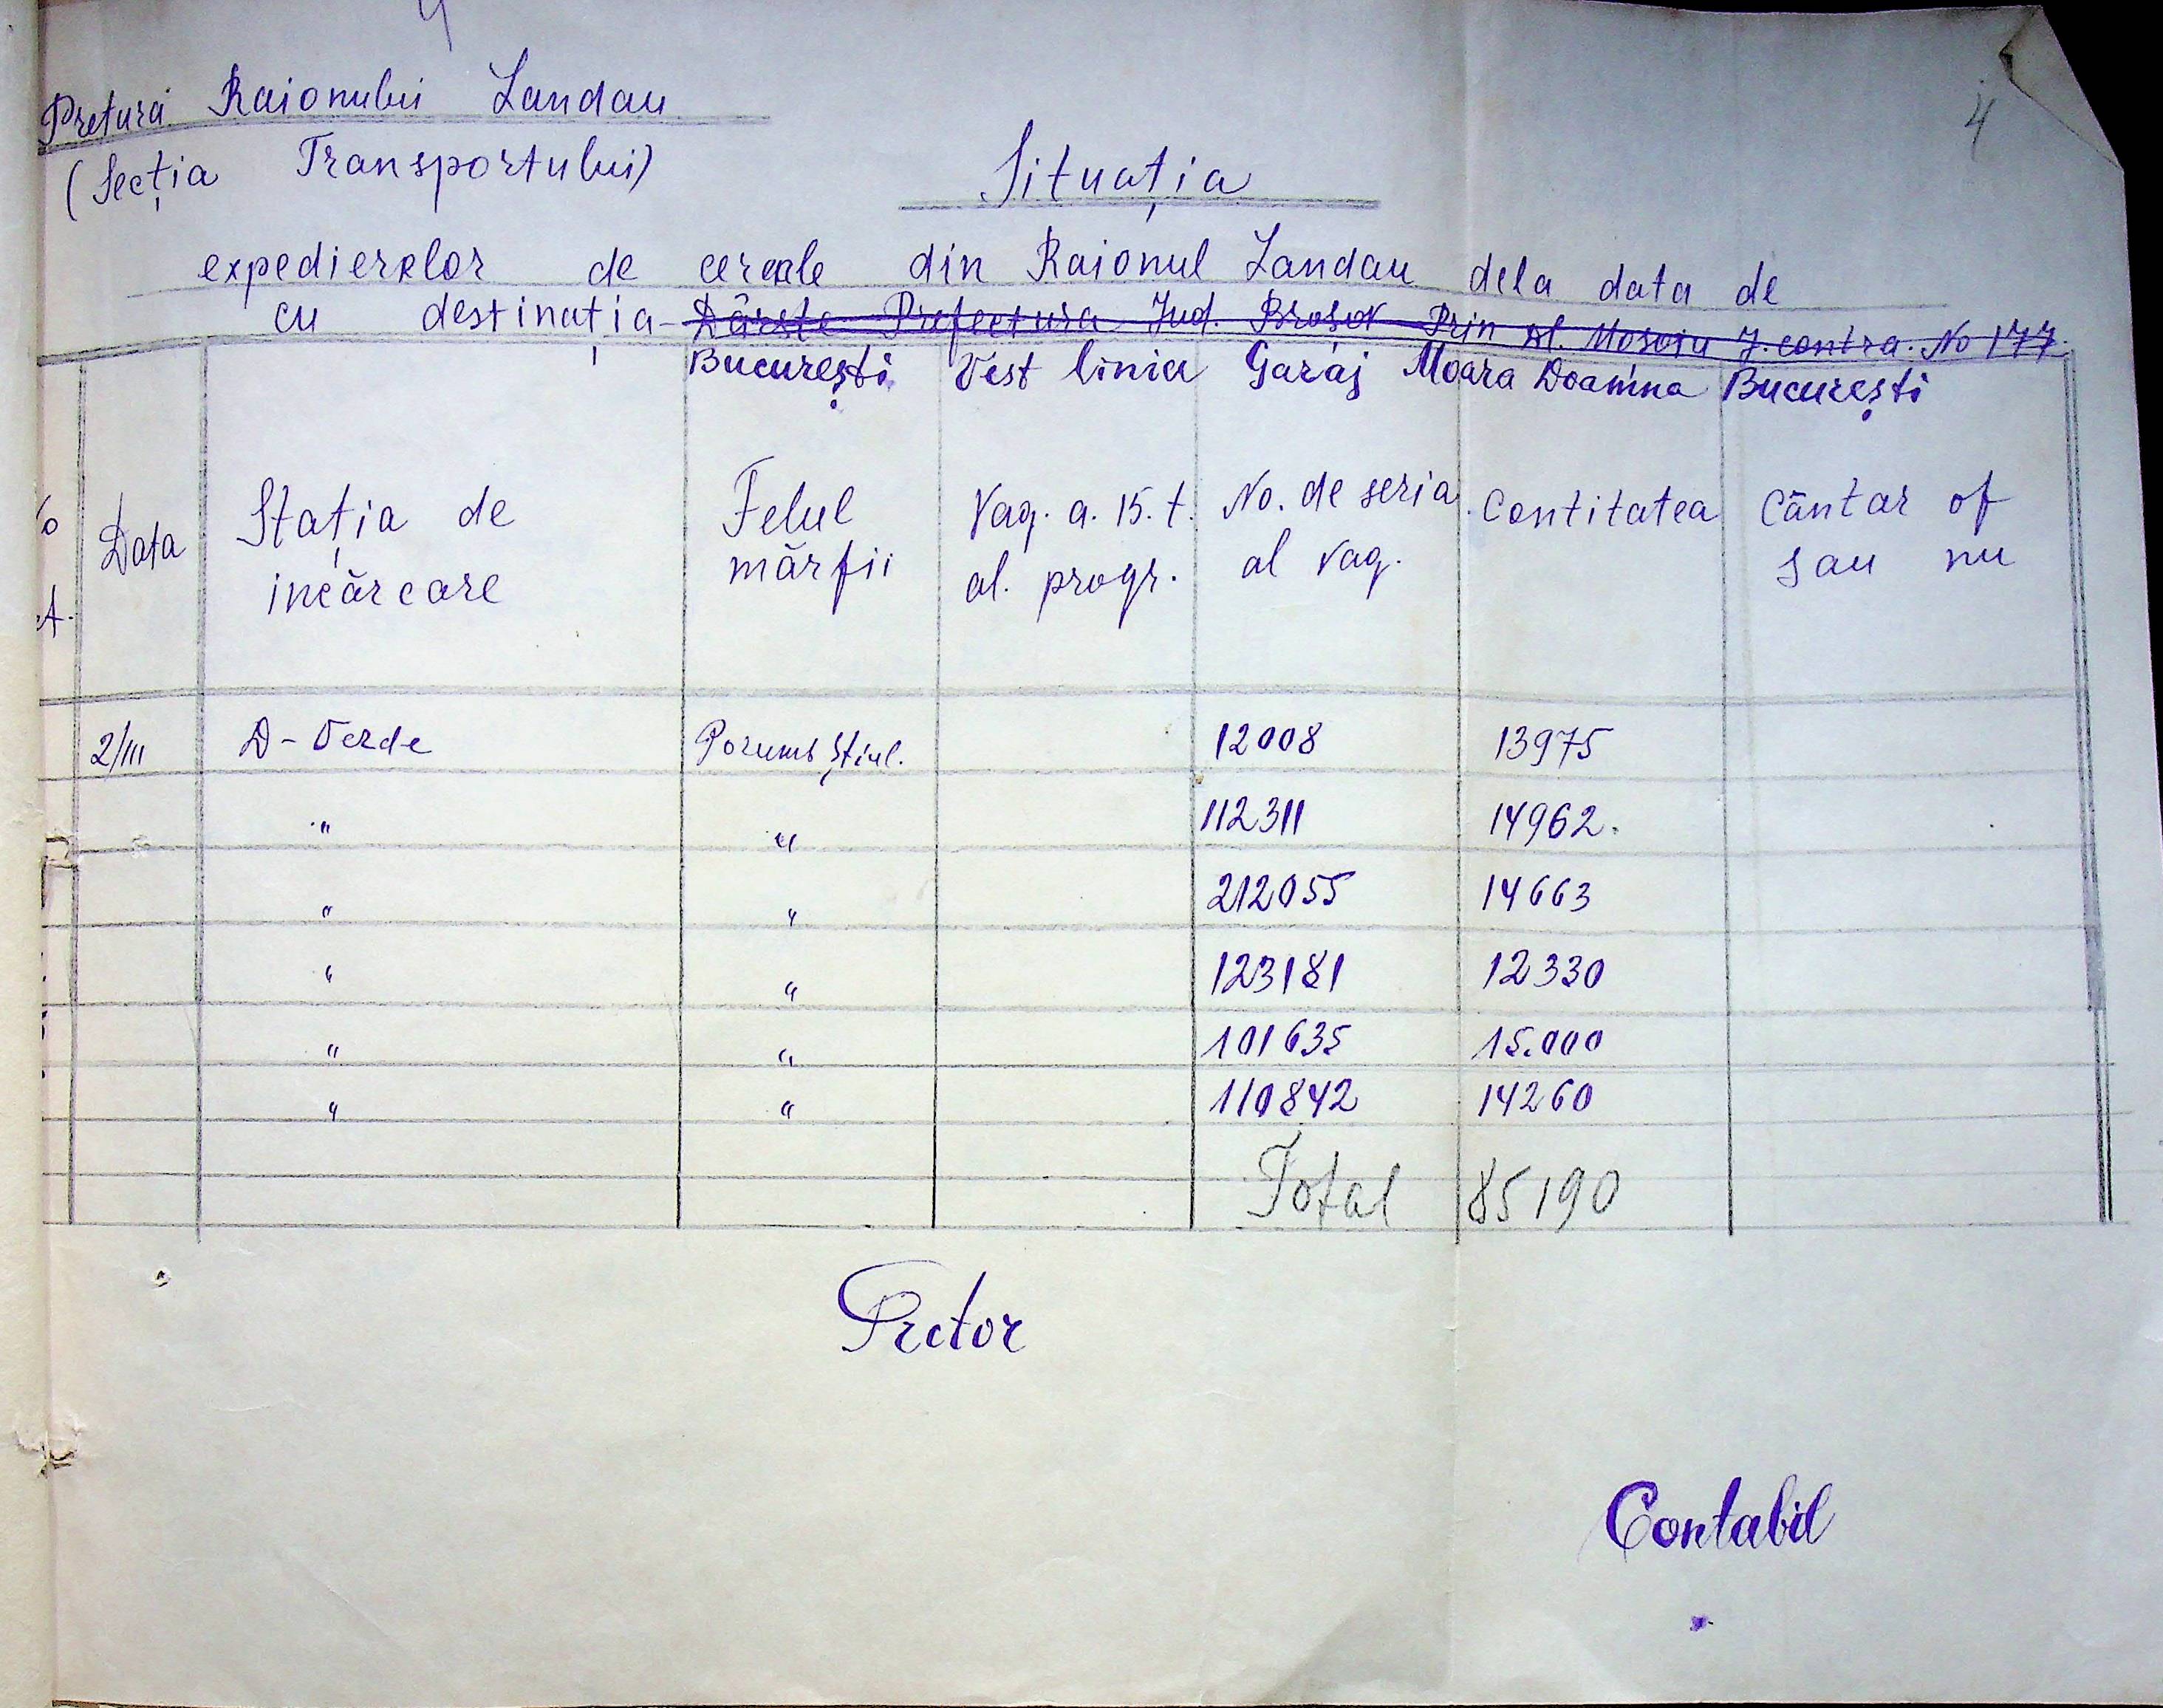 4
Pretura Raionului Landau
(Secția Transportului)
Situația
expedierelor de cereale din Raionul Landau dela data de
cu destinația - Dârste Prefectura Jud. Brosov Prin sl. Mosoiu J. contra. No 177.
București Vest linia Garaj Moara Doamna București
Data Stația de incărcare Felul mărfii Vag. a. 15. t. al. progr. No. de seria al vag. Contitatea Cântar of sau nu
2/III D-Verde Porumb știul. 12008 13975
" " 112311 14962.
" " 212055 14663
" " 123181 12330
" " 101635 15.000
" " 110842 14260
Total 85190
Pretor
Contabil